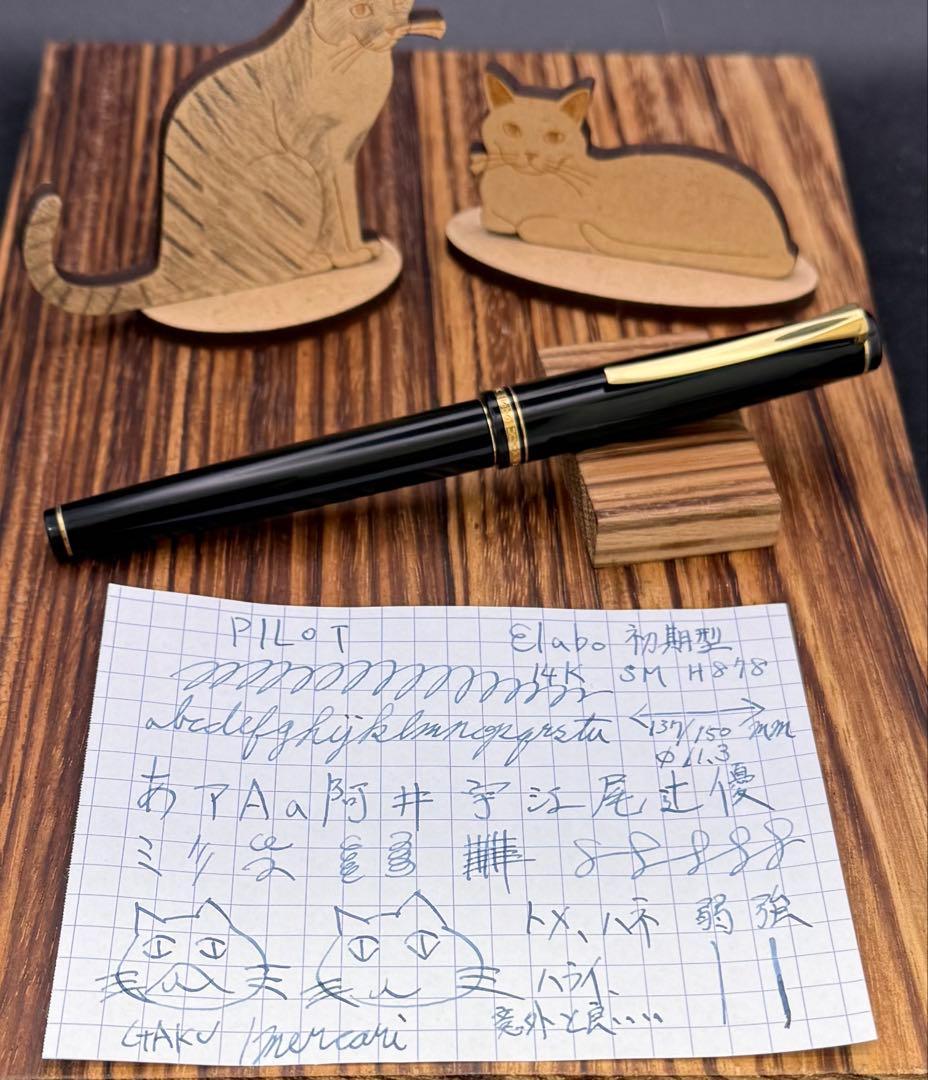 PILOT Elabo 初期型
14K SM H878
abcdefghijklmnopqrstu 137/150 mm
φ11.3
あアAa阿井宇江尾辻優
ミリ
トメ、ハネ 弱 強
ハライ、
意外と良、、、、
GAKU /mercari